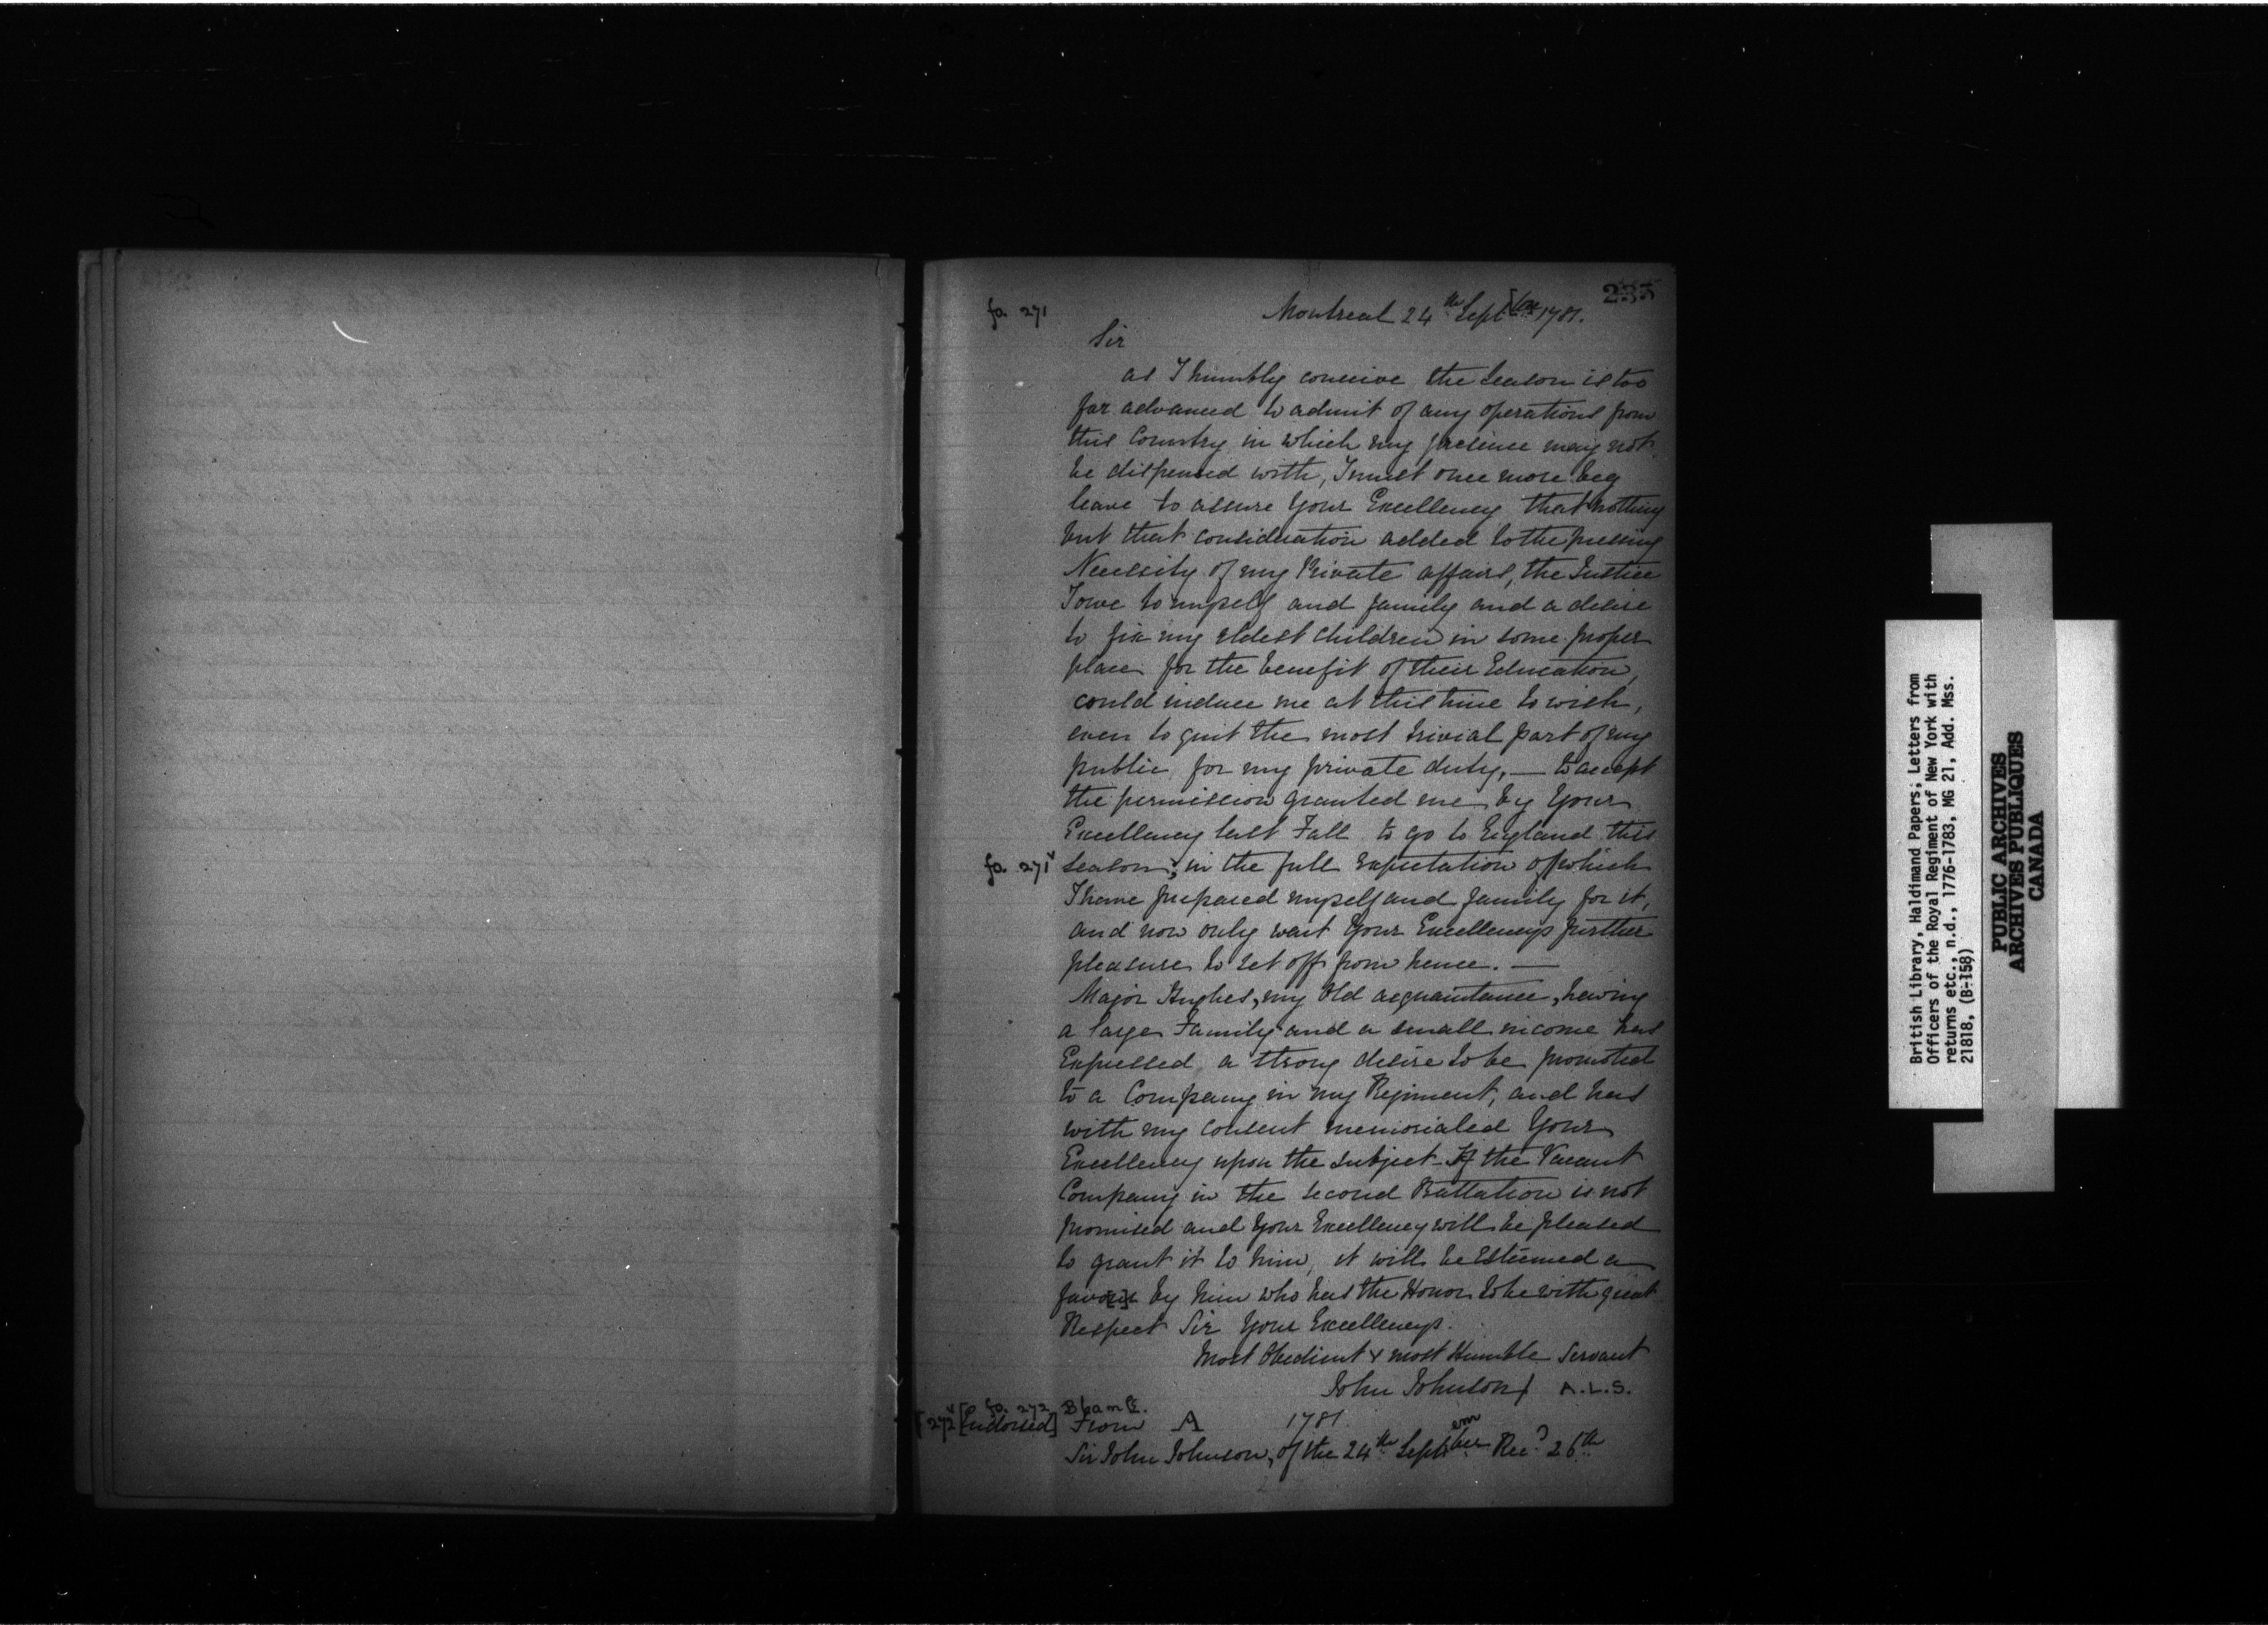 235
fo. 271 Montreal 24th Sept[ber] 1781.
Sir
as I humbly conceive the Season is too
far advanced to admit of any operations from
this Country in which my presence may not
be dispensed with, I must once more beg
leave to assure Your Excellency that nothing
but that consideration added to the pressing
Necessity of my Private affairs, the Justice
I owe to myself and family and a desire
to fix my eldest children in some proper
place for the benefit of their Education,
could induce me at this time to wish,
even to quit the most trivial part of my
public, for my private duty, — to accept
the permission granted me by Your
Excellency last Fall to go to England this
fo. 271v season; in the full expectation of which
I have prepared myself and family for it,
and now only wait Your Excellencys further
pleasure to set off from hence. —
Major Hughes, my Old acquaintance, having
a large Family and a small income has
Expressed a strong desire to be promoted
to a Company in my Regiment, and has
with my consent memorialed Your
Excellency upon the subject - If the Vacant
Company in the second Battalion is not
promised and Your Excellency will be pleased
to grant it to him, it will be Esteemed a
favor by him who has the Honor to be with great
Respect Sir Your Excellencys.
Most Obedient & most Humble Servant
John Johnson A.L.S.
fo. 272 Blank.
272v [Endorsed] From A 1781.
Sir John Johnson, of the 24th September Rec'd 26th
British Library, Haldimand Papers; Letters from
Officers of the Royal Regiment of New York with
returns etc., n.d., 1776-1783, MG 21, Add. Mss.
21818, (B-158)
PUBLIC ARCHIVES
ARCHIVES PUBLIQUES
CANADA